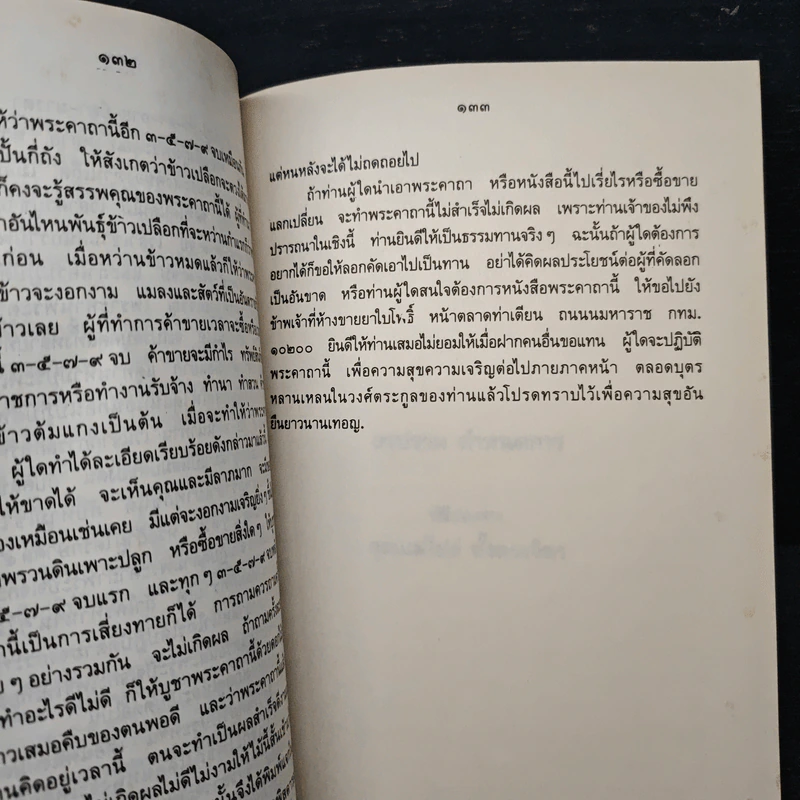 ๑๓๒
ห้ว่าพระคาถานี้อีก ๓-๕-๗-๙ จบเหมือนกัน
ปั้นกี่ถัง ให้สังเกตว่าข้าวเปลือกจะ
ก็คงจะรู้สรรพคุณของพระคาถานี้ได้ ผู้ที่ทำ
าอันไหนพันธุ์ข้าวเปลือกที่จะหว่าน
ก่อน เมื่อหว่านข้าวหมดแล้วก็ให้ว่าพระ
ข้าวจะงอกงาม แมลงและสัตว์ที่เป็นอันตราย
าวเลย ผู้ที่ทำการค้าขายเวลาจะซื้อ
๓-๕-๗-๙ จบ ค้าขายจะมีกำไร
าชการหรือทำงานรับจ้าง ทำนา ทำสวน
ข้าวต้มแกงเป็นต้น เมื่อจะทำให้ว่าพระ
ผู้ใดทำได้ละเอียดเรียบร้อยดังกล่าวมาแล้วนี้
ให้ขาดได้ จะเห็นคุณและมีลาภมาก
องเหมือนเช่นเคย มีแต่จะงอกงามเจริญยิ่งๆ
พรวนดินเพาะปลูก หรือซื้อขายสิ่งใดๆ
๕-๗-๙ จบแรก และทุกๆ ๓-๕-๗-๙
านี้เป็นการเสี่ยงทายก็ได้ การถาม
ย ๆ อย่างรวมกัน จะไม่เกิดผล ถ้าถาม
ทำอะไรดีไม่ดี ก็ให้บูชาพระคาถานี้ด้วย
าวเสมอคืบของตนพอดี และว่าพระคาถา
านคิดอยู่เวลานี้ ตนจะทำเป็นผลสำเร็จ
ไม่เกิดผลไม่ดีไม่งามให้ไม้นี้สั้น
๑๓๓
แต่หนหลังจะได้ไม่ถดถอยไป
ถ้าท่านผู้ใดนำเอาพระคาถา หรือหนังสือนี้ไปเรี่ยไรหรือซื้อขาย
แลกเปลี่ยน จะทำพระคาถานี้ไม่สำเร็จไม่เกิดผล เพราะท่านเจ้าของไม่พึง
ปรารณนาในเชิงนี้ ท่านยินดีให้เป็นธรรมทานจริง ๆ ฉะนั้นถ้าผู้ใดต้องการ
อยากได้ก็ขอให้ลอกคัดเอาไปเป็นทาน อย่าได้คิดผลประโยชน์ต่อผู้ที่คัดลอก
เป็นอันขาด หรือท่านผู้ใดสนใจต้องการหนังสือพระคาถานี้ ให้ขอไปยัง
ข้าพเจ้าที่ห้างขายยาใบโพธิ์ หน้าตลาดท่าเตียน ถนนนมหาราช กทม.
๑๐๒๐๐ ยินดีให้ท่านเสมอไม่ยอมให้เมื่อฝากคนอื่นขอแทน ผู้ใดจะปฏิบัติ
พระคาถานี้ เพื่อความสุขความเจริญต่อไปภายภาคหน้า ตลอดบุตร
หลานเหลนในวงศ์ตระกูลของท่านแล้วโปรดทราบไว้เพื่อความสุขอัน
ยืนยาวนานเทอญ.